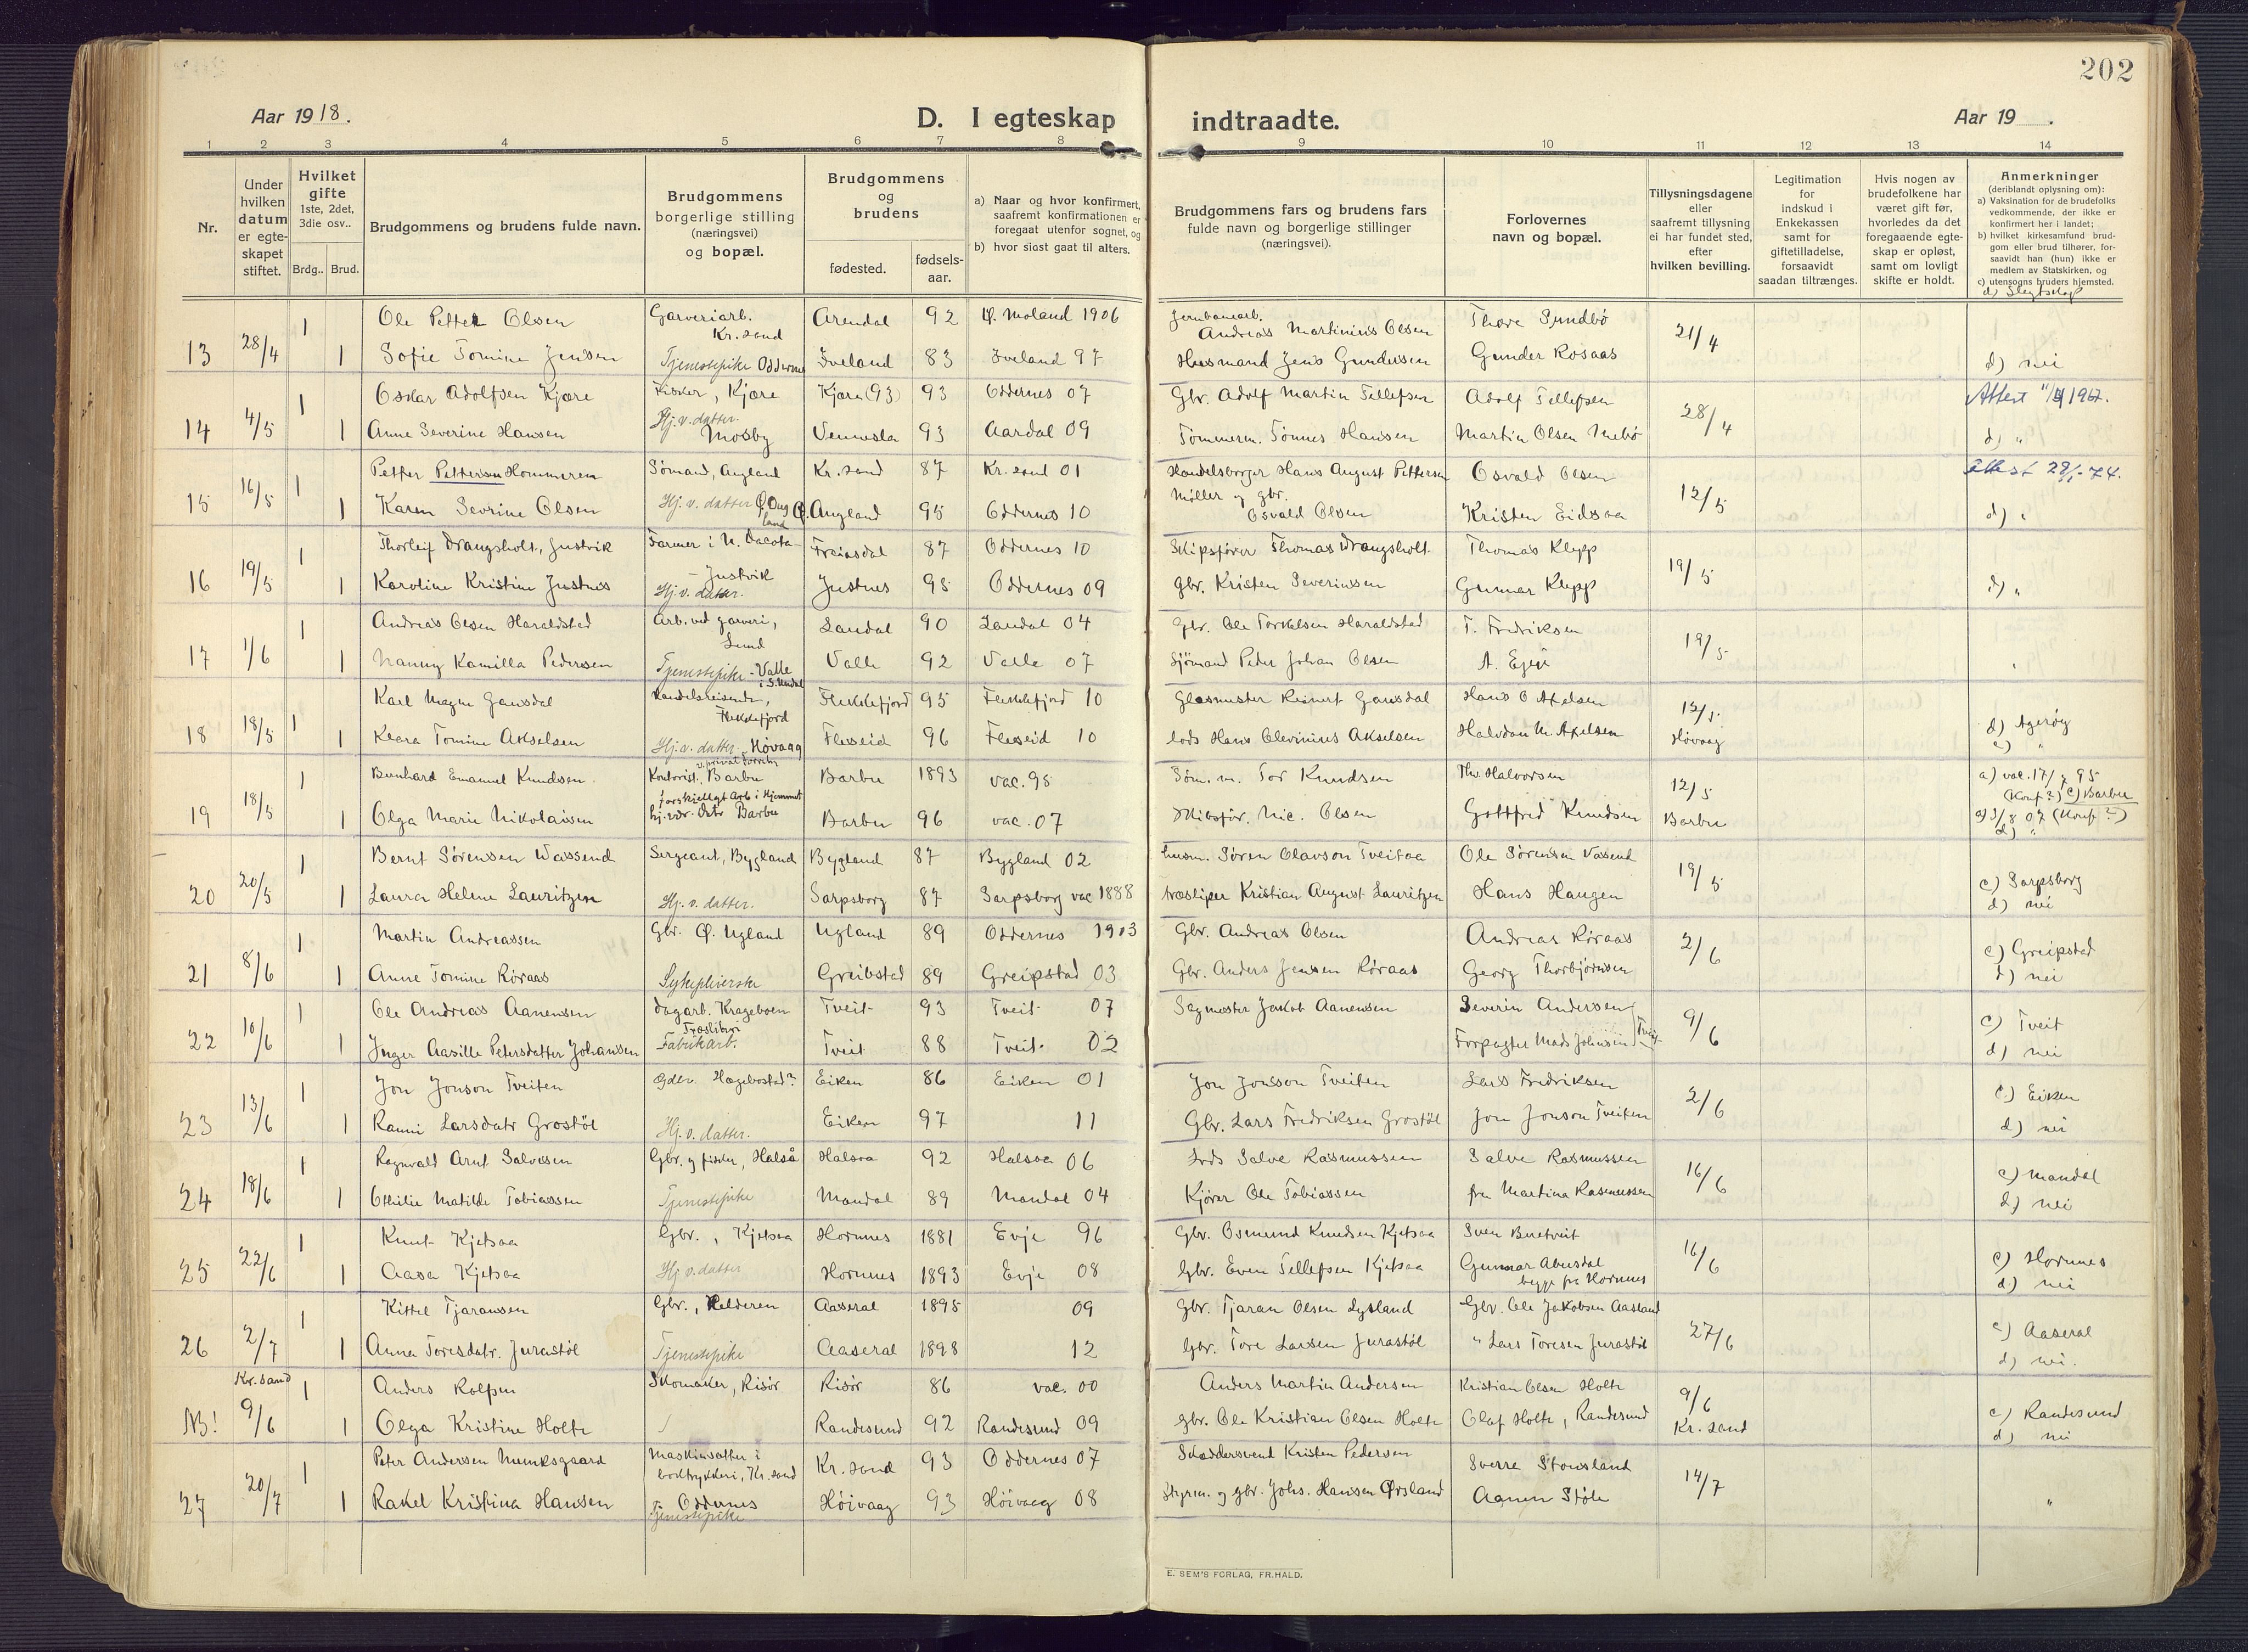 202
Aar 1918.
D. I egteskap indtraadte.
Aar 19 .
1 2 3 4 5 6 7 8 9 10 11 12 13 14
Nr.
Under hvilken datum er egte-skapet stiftet.
Hvilket gifte
1ste, 2det, 3die osv..
Brdg.. Brud.
Brudgommens og brudens fulde navn.
Brudgommens borgerlige stilling
(næringsvei)
og bopæl.
Brudgommens og brudens
fødested.
fødsels-aar.
a) Naar og hvor konfirmert, saafremt konfirmationen er foregaat utenfor sognet, og
b) hvor sidst gaat til alters.
Brudgommens fars og brudens fars
fulde navn og borgerlige stillinger
(næringsvei).
Forlovernes
navn og bopæl.
Tillysningsdagene
eller
saafremt tillysning
ei har fundet sted,
efter
hvilken bevilling.
Legitimation
for
indskud i
Enkekassen
samt for
giftetilladelse,
forsaavidt
saadan tiltrænges.
Hvis nogen av
brudefolkene har
været gift før,
hvorledes da det
foregaaende egte-
skap er opløst,
samt om lovligt
skifte er holdt.
Anmerkninger
(deriblandt oplysning om):
a) Vaksination for de brudefolks
vedkommende, der ikke er
konfirmert her i landet;
b) hvilket kirkesamfund brud-
gom eller brud tilhører, for-
saavidt han (hun) ikke er
medlem av Statskirken, og
c) utensogns bruders hjemsted.
d) Slegtskap
13 28/4 1 Ole Petter Olsen Garveriarb. Kr.sand Arendal 92 Ø. Moland 1906 Jernbanearb. Andreas Martinius Olsen Thore Sundbø 21/4
1 Sofie Tomine Jensen Tjenestepike Oddernes Iveland 83 Iveland 97 Husmand Jens Gundersen Gunder Rosaas d) nei
14 4/5 1 Oskar Adolfsen Kjære Fisker, Kjære Kjære (93) 93 Oddernes 07 Gbr. Adolf Martin Tellefsen Adolf Tellefsen 28/4 Attest
1 Anne Severine Hansen Hj.v.datter. Mosby Vennesla 93 Aardal 09 Tømmerm. Tønnes Hansen Martin Olsen Mebø d) "
15 16/5 1 Petter Pettersen Hommeren Sømand, Augland Kr.sand 87 Kr.sand 01 Handelsborger Hans August Pettersen Osvald Olsen 12/5 Attest
1 Karen Sevrine Olsen Hj.v. datter Ø. Augland Ø. Augland 95 Oddernes 10 Møller og gbr. Osvald Olsen Kristen Eidsaa d) "
16 19/5 1 Thorleif Drangsholt, Justvik Farmer i N. Dacota - Justvik Freiasdal 87 Oddernes 10 Skipsfører Thomas Drangsholt. Thomas Klepp 19/5
1 Karoline Kristine Justnes Hj.v. datter. Justnes 95 Oddernes 09 Gbr. Kristen Severinsen Gunnar Klepp d) "
17 1/6 1 Andreas Olsen Haraldstad Arb. ved garveri, Lund Laudal 90 Laudal 04 Gbr. Ole Torkelsen Haraldstad T. Fredriksen 19/5
1 Nanny Kamilla Pedersen Tjenestepike - Valle i S.Undal Valle 92 Valle 07 Sjømand Peder Johan Olsen A. Egje "
18 18/5 1 Karl Magne Gausdal Handelsreisende, Flekkefjord Flekkefjord 95 Flekkefjord 10 Glasmester Reinert Gausdal Hans O Axelsen 12/5 Høvaag
1 Klara Tomine Akselsen Hj.v. datter Høvaag Flesseid 96 Flesseid 10 Lods Hans Olevinius Akselsen Halvdan M. Axelsen d) Agerøy
c) "
19 18/5 1 Bernhard Emanuel Knudsen Kontorist, Barbu Barbu 1893 vac. 95 Søm. m. Tor Knudsen Thv. Halvorsen 12/5 Barbu a) vac. 17/7 95
(Konf?) c) Barbu
1 Olga Marie Nikolaisen forskjelligt Arb i Hjemmet hj.vær. Datr Barbu Barbu 96 vac. 07 Skibsfør. Nic. Olsen Gottfred Knudsen a) 3/8 07 (Konf?)
d) "
20 20/5 1 Bernt Sørensen Wassend Sergeant, Bygland Bygland 87 Bygland 02 husm. Søren Olavson Tveitaa Ole Sørensen Vassend 19/5
1 Laura Helene Lauritzen Hj.v. datter. Sarpsborg 87 Sarpsborg vac 1888 træsliper Kristian August Lauritzen Hans Haugen c) Sarpsborg
d) nei
21 8/6 1 Martin Andreassen Gbr. Ø. Ugland Ugland 89 Oddernes 1903 Gbr. Andreas Olsen Andreas Røraas 2/6
1 Anne Tomine Røraas Sykepleierske Greibstad 89 Greipstad 03 Gbr. Anders Jensen Røraas Georg Thorbjørnsen c) Greipstad
d) nei
22 10/6 1 Ole Andreas Aanensen Dagarb. Krageboen Tveit 93 Tveit 07 Sagmester Jakob Aanensen Severin Andersen 9/6 c) Tveit
1 Inger Aasille Petersdatter Johansen Træsliberi Fabrikarb. Tveit 88 Tveit 02 Forpagter Mads Johnsen Tveit d) nei
23 13/6 1 Jon Jonson Tveiten Gdbr. Hægebostad? Eiken 86 Eiken 01 Jon Jonsson Tveiten Lars Fredriksen 2/6 c) Eiken
1 Ranni Larsdatr Grostøl Hj.v. datter. Eiken 97 11 Gbr. Lars Fredriksen Grostøl Jon Jonson Tveiten d) nei
24 18/6 1 Ragnvald Arnt Salvesen Gbr. og fisker, Halså Halsaa 92 Halsaa 06 Lods Salve Rasmussen Salve Rasmussen 16/6 c) Mandal
1 Othilie Matilde Tobiassen Tjenestepike Mandal 89 Mandal 04 Kjører Ole Tobiassen fru Martina Rasmussen d) nei
25 22/6 1 Knut Kjetsaa Gbr., Kjetsaa Hornnes 1881 Evje 96 Gbr. Osmund Knudsen Kjetsaa Sven Beretveit 16/6 c) Hornnes
1 Aasa Kjetsaa Hj v. datter Hornnes 1893 Evje 08 Gbr. Even Tellefsen Kjetsaa Gunnar Abusdal begge fra Hornnes d) nei
26 2/7 1 Kittel Tjaransen Gbr., Helderen Aaseral 1895 09 Gbr. Tjaran Olsen Lysland Gbr. Ole Jakobsen Aasland 27/6 c) Aaseral
1 Anna Toresdatr. Jurastøl Tjenestepike Aaseral 1898 12 Gbr. Tore Larsen Jurastøl " Lars Toresen Jurastøl d) nei.
NB! Kr.sand 9/6 1 Anders Rolfsen Skomaker, Risør Risør 86 vac. 00 Anders Martin Andersen Kristian Olsen Holte 9/6 Kr.sand
1 Olga Kristine Holte / Randesund 92 Randesund 09 Gbr. Ole Kristian Olsen Holte Olaf Holte, Randesund c) Randesund
d) nei
27 20/7 1 Peter Andersen Munksgaard Maskinsætter i boktrykkeri, Kr.sand Kr.sand 93 Oddernes 07 Skræddersvend Kristen Pedersen Sverre Stousland 14/7
1 Rakel Kristina Hansen Oddernes Tjenestepike Høivaag 93 Høivaag 08 Styrm. og gbr. Johs. Hansen Ørsland Aanen Støle "
E. SEM'S FORLAG, FR.HALD.